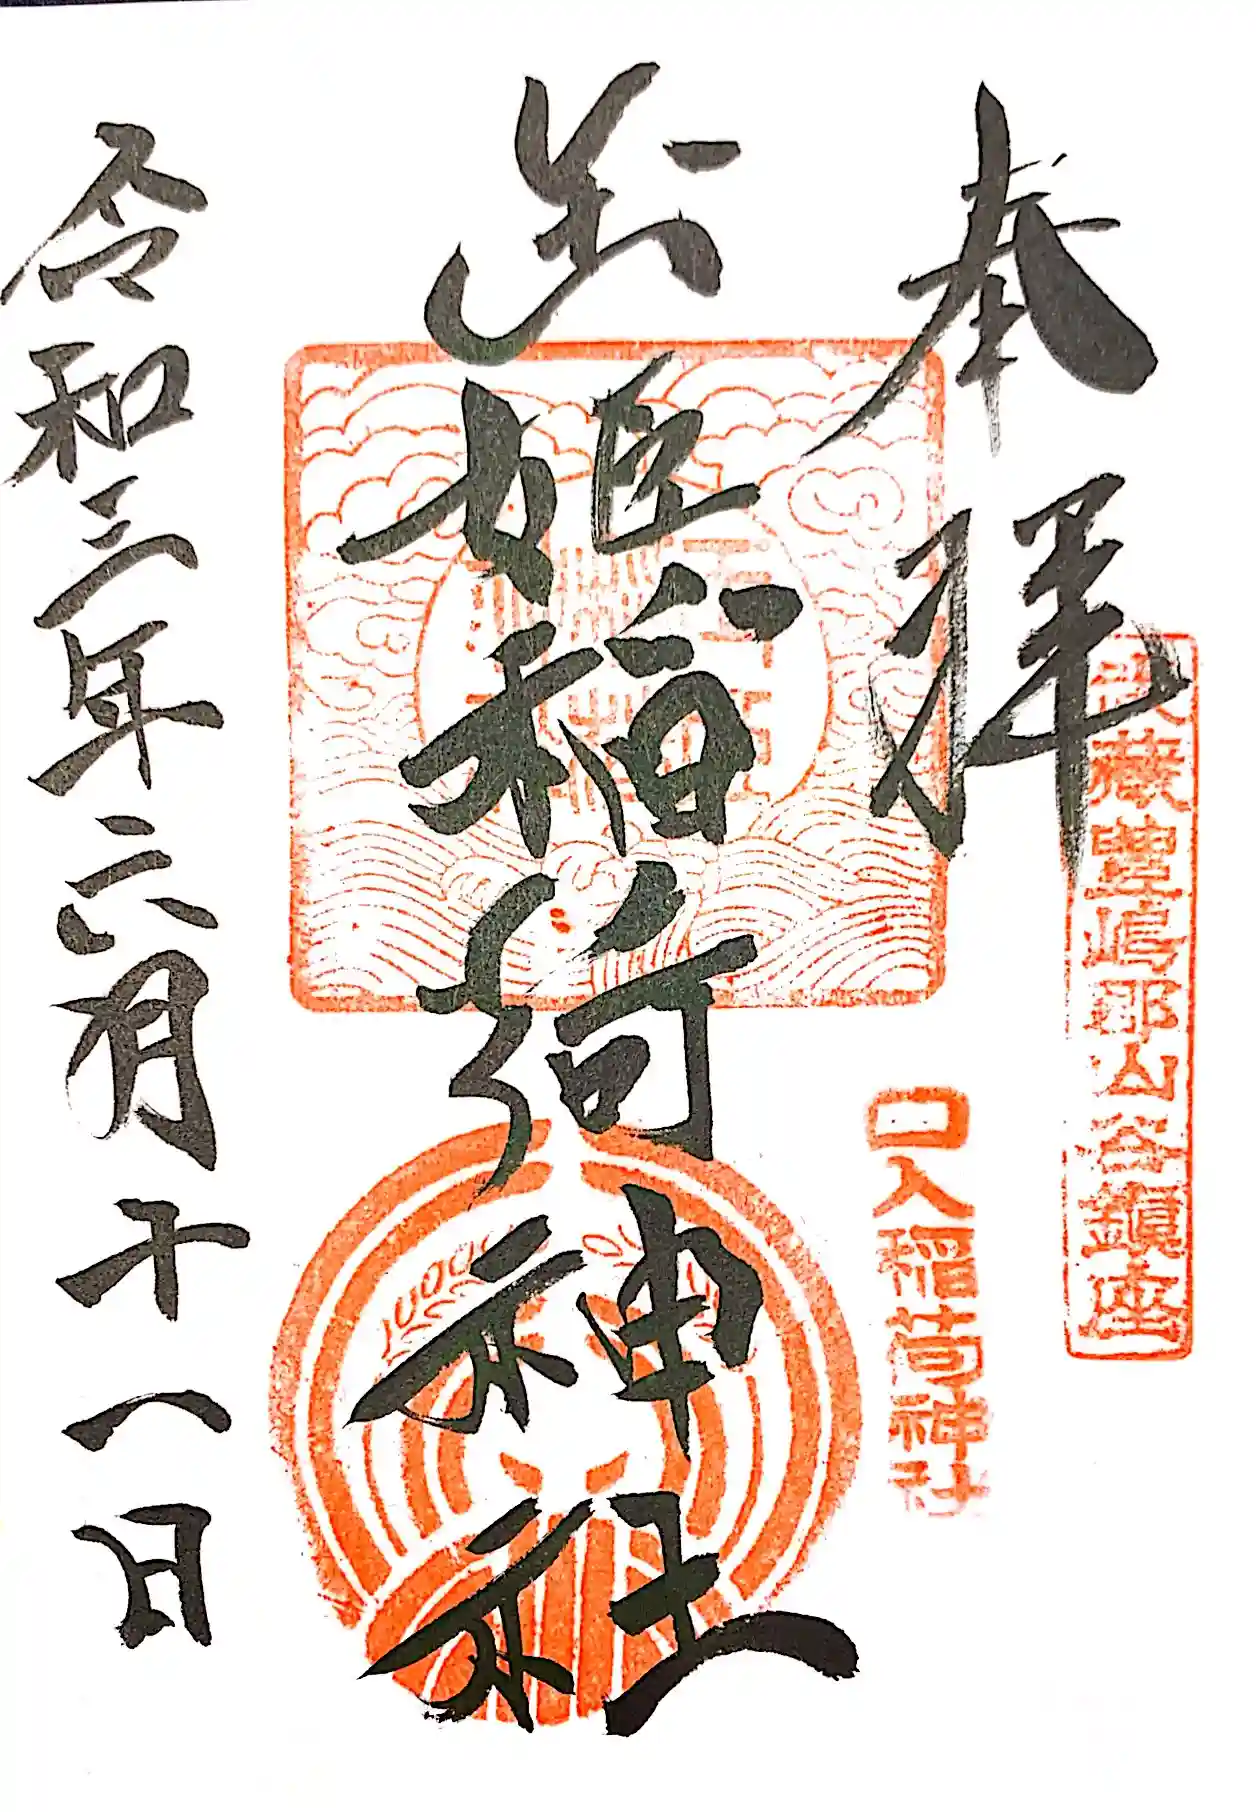 奉拝
武蔵豊嶋郡山谷鎮座
口入稲荷神社
玉姫稲荷神社
令和三年六月十八日